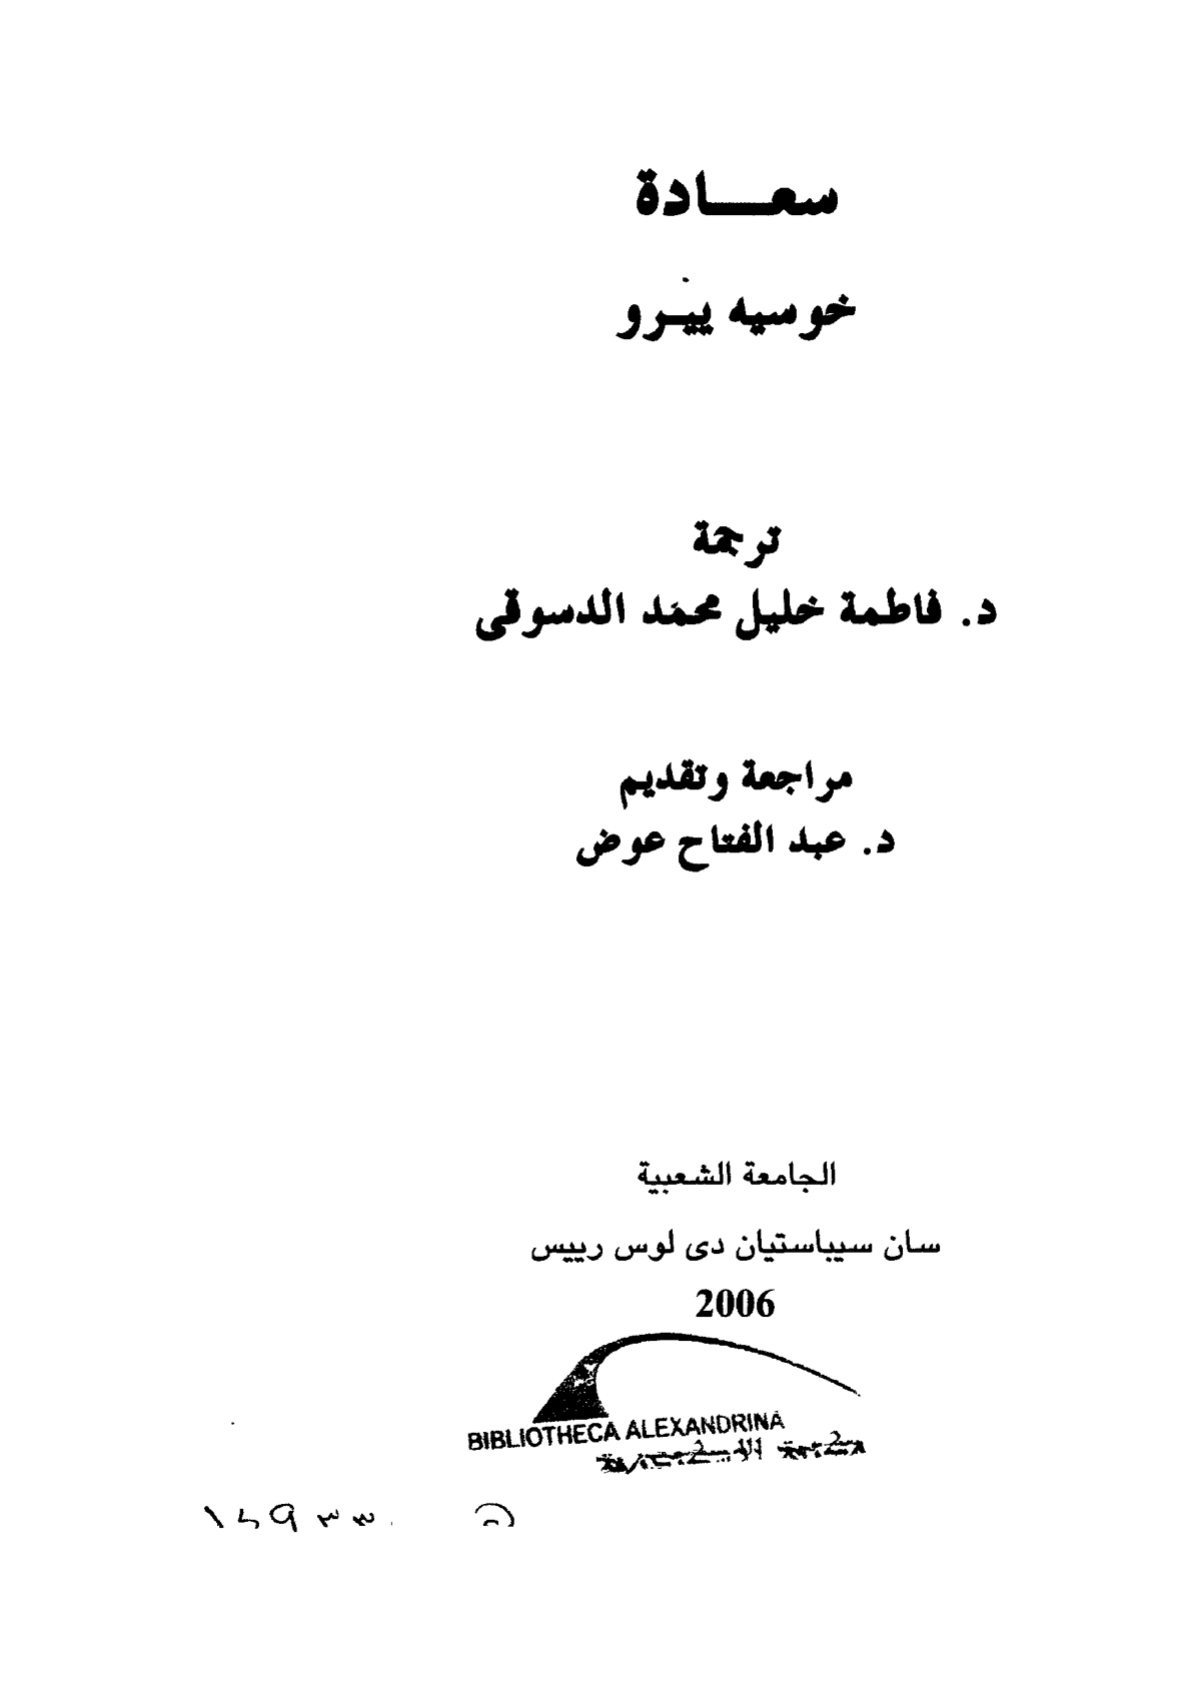 سعـــادة
خوسيه ييرو
ترجمة
د. فاطمة خليل محمد الدسوقى
مراجعة وتقديم
د. عبد الفتاح عوض
الجامعة الشعبية
سان سيباستيان دى لوس رييس
2006
BIBLIOTHECA ALEXANDRINA
مكتبة الإسكندرية